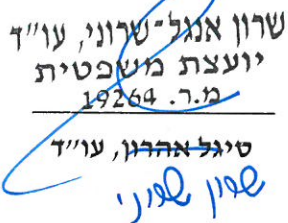 שרון אנגל-שרוני, עו"ד
יועצת משפטית
מ.ר. 19264
סיגל אהרון, עו"ד
שרון שרוני